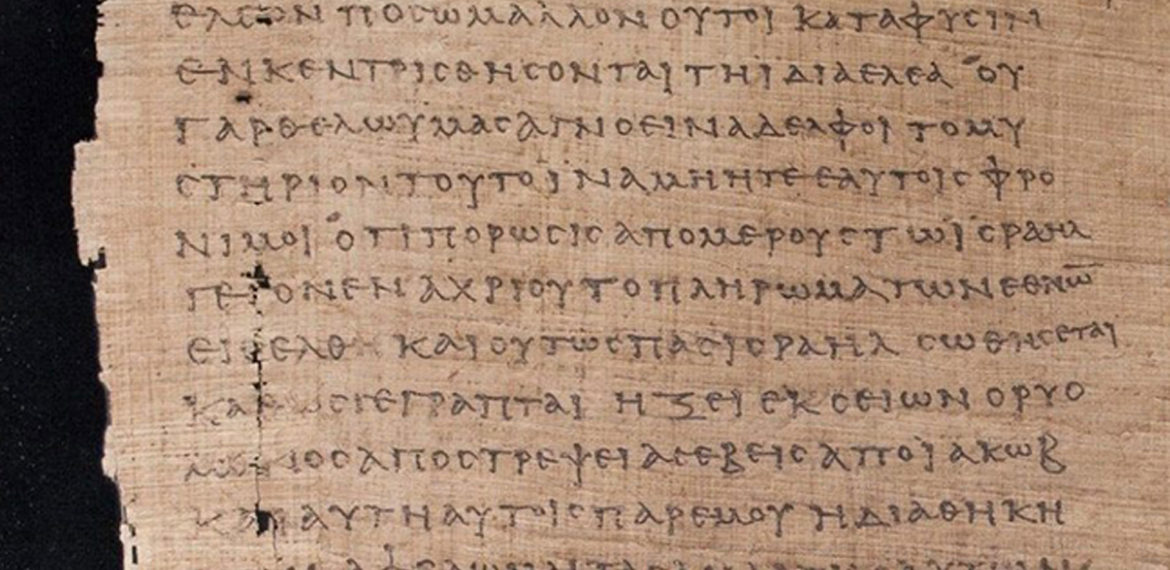 ΕΛΕΟΝ ΠΟϹΩΜΑΛΛΟΝ ΟΥΤΟΙ ΚΑΤΑΦΥϹΙΝ
ΕΝΚΕΝΤΡΙϹΘΗϹΟΝΤΑΙ ΤΗΙΔΙΑΕΛΕΑ ΟΥ
ΓΑΡΘΕΛΩΥΜΑϹΑΓΝΟΕΙΝΑΔΕΛΦΟΙ ΤΟΜΥ
ϹΤΗΡΙΟΝΤΟΥΤΟΙΝΑΜΗΗΤΕΕΑΥΤΟΙϹΦΡΟ
ΝΙΜΟΙ ΟΤΙΠΟΡΩϹΙϹΑΠΟΜΕΡΟΥϹΤΩΪϹΡΑΗΛ
ΓΕΓΟΝΕΝΑΧΡΙΟΥΤΟΠΛΗΡΩΜΑΤΩΝΕΘΝΩ̅
ΕΙϹΕΛΘΗ ΚΑΙΟΥΤΩϹΠΑϹΙϹΡΑΗΛ ϹΩΘΗϹΕΤΑΙ
ΚΑΘΩϹΓΕΓΡΑΠΤΑΙ ΗΞΕΙ ΕΚϹΕΙΩΝ ΟΡΥΟ
ΜΕΝΟϹΑΠΟϹΤΡΕΨΕΙΑϹΕΒΕΙϹΑΠΟΪΑΚΩΒ
ΚΑΙ ΑΥΤΗΑΥΤΟΙϹΠΑΡΕΜΟΥ ΗΔΙΑΘΗΚΗ